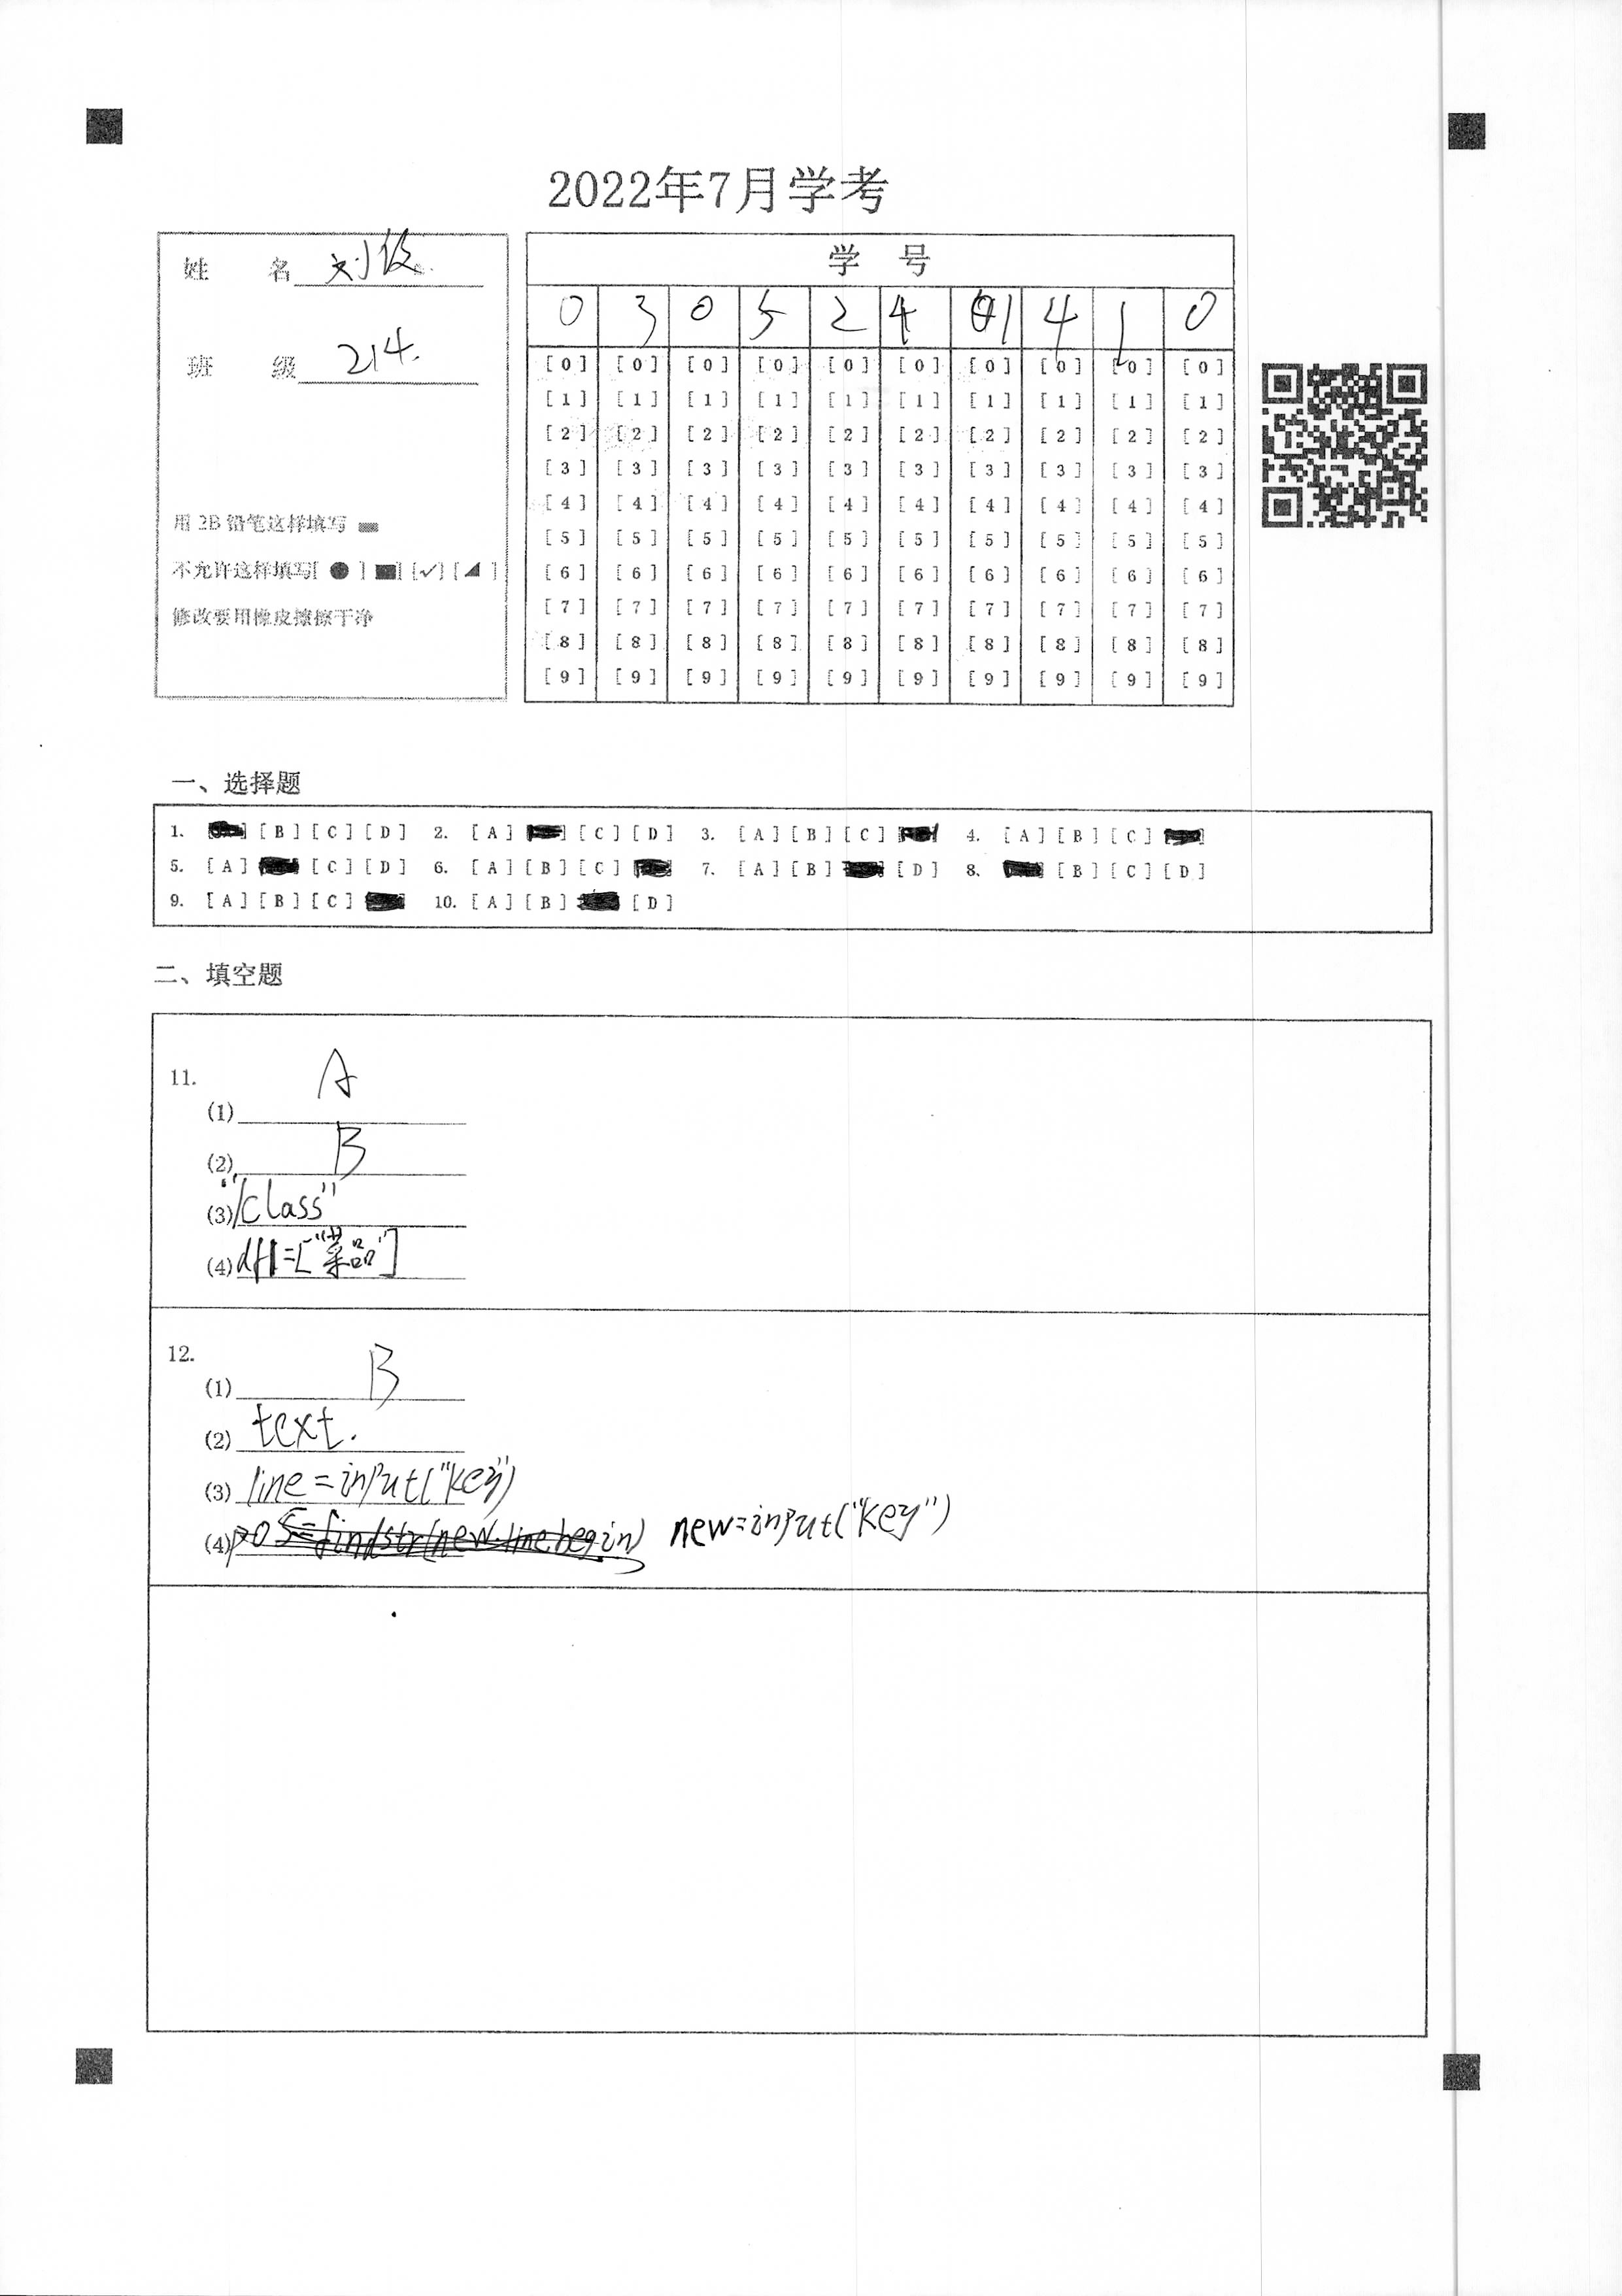 2022年7月学考
姓 名 刘俊
班 级 214.
用 2B 铅笔这样填写
不允许这样填写[ ● ] [■] [✓] [◢ ]
修改要用橡皮擦擦干净
学 号
0 3 0 5 2 4 1 4 1 0
[0] [0] [0] [0] [0] [0] [0] [0] [0] [0]
[1] [1] [1] [1] [1] [1] [1] [1] [1] [1]
[2] [2] [2] [2] [2] [2] [2] [2] [2] [2]
[3] [3] [3] [3] [3] [3] [3] [3] [3] [3]
[4] [4] [4] [4] [4] [4] [4] [4] [4] [4]
[5] [5] [5] [5] [5] [5] [5] [5] [5] [5]
[6] [6] [6] [6] [6] [6] [6] [6] [6] [6]
[7] [7] [7] [7] [7] [7] [7] [7] [7] [7]
[8] [8] [8] [8] [8] [8] [8] [8] [8] [8]
[9] [9] [9] [9] [9] [9] [9] [9] [9] [9]
一、选择题
1. [B] [C] [D] 2. [A] [C] [D] 3. [A] [B] [C] 4. [A] [B] [C]
5. [A] [C] [D] 6. [A] [B] [C] 7. [A] [B] [D] 8. [B] [C] [D]
9. [A] [B] [C] 10. [A] [B] [D]
二、填空题
11.
(1) A
(2) B
(3) "/class"
(4) df1=["菜品"]
12.
(1) B
(2) text.
(3) line=input("key")
(4) pos=findstr(new.line.begin) new=input("key")